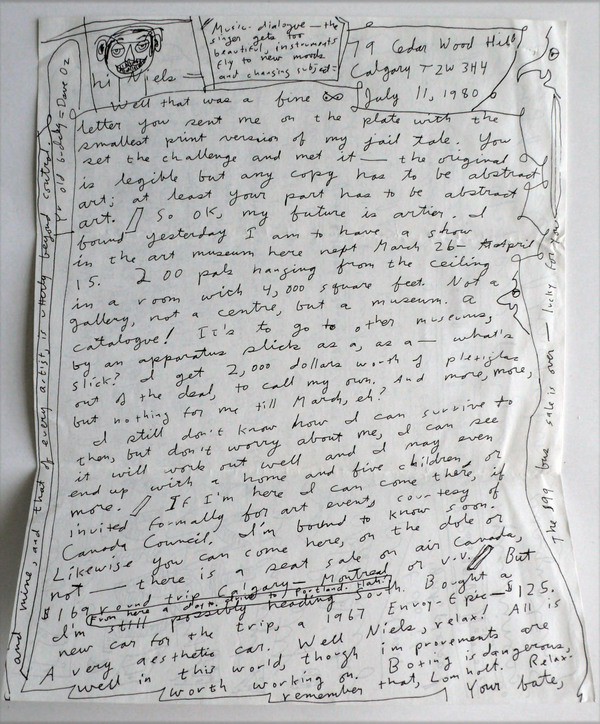 Music dialogue — the
singer gets too
beautiful, instruments
fly to new moods
and changing subject =
hi Niels =
79 Cedar Wood Hill
Calgary T2W 3H4
July 11, 1980
Well that was a fine
letter you sent me on the plate with the
smallest print version of my jail tale. You
set the challenge and met it — the original
is legible but any copy has to be abstract
art; at least your part has to be abstract
art. So OK, my future is artier. I
found yesterday I am to have a show
in the art museum here next March 26 - April
15. 200 pals hanging from the ceiling
in a room with 4,000 square feet. Not a
gallery, not a centre, but a museum. A
catalogue! It's to go to other museums,
by an apparatus slick as a, as a — what's
slick? I get 2,000 dollars worth of plexiglas
out of the deal, to call my own. And more, more,
but nothing for me till March, eh?
I still don't know how I can survive to
then, but don't worry about me, I can see
it will work out well and I may even
end up with a home and five children, or
more. If I'm here I can come there, if
invited formally for art event, courtesy of
Canada Council. I'm bound to know soon.
Likewise you can come here, on the dole or
not — there is a seat sale on air Canada,
169 round trip Calgary — Montreal or v.v. But
From here a
to Portland.
I'm still possibly heading South. Bought a
new car for the trip, a 1967 Envoy-Epic — $125.
A very aesthetic car. Well Niels, relax! All is
well in this world, though improvements are
worth working on. Boxing is dangerous,
remember that, Lomholt. Relax.
Your bate,
and mine, and that of every artist, is utterly beyond control
Dave Oz
The $99 one sale is over — lucky for you